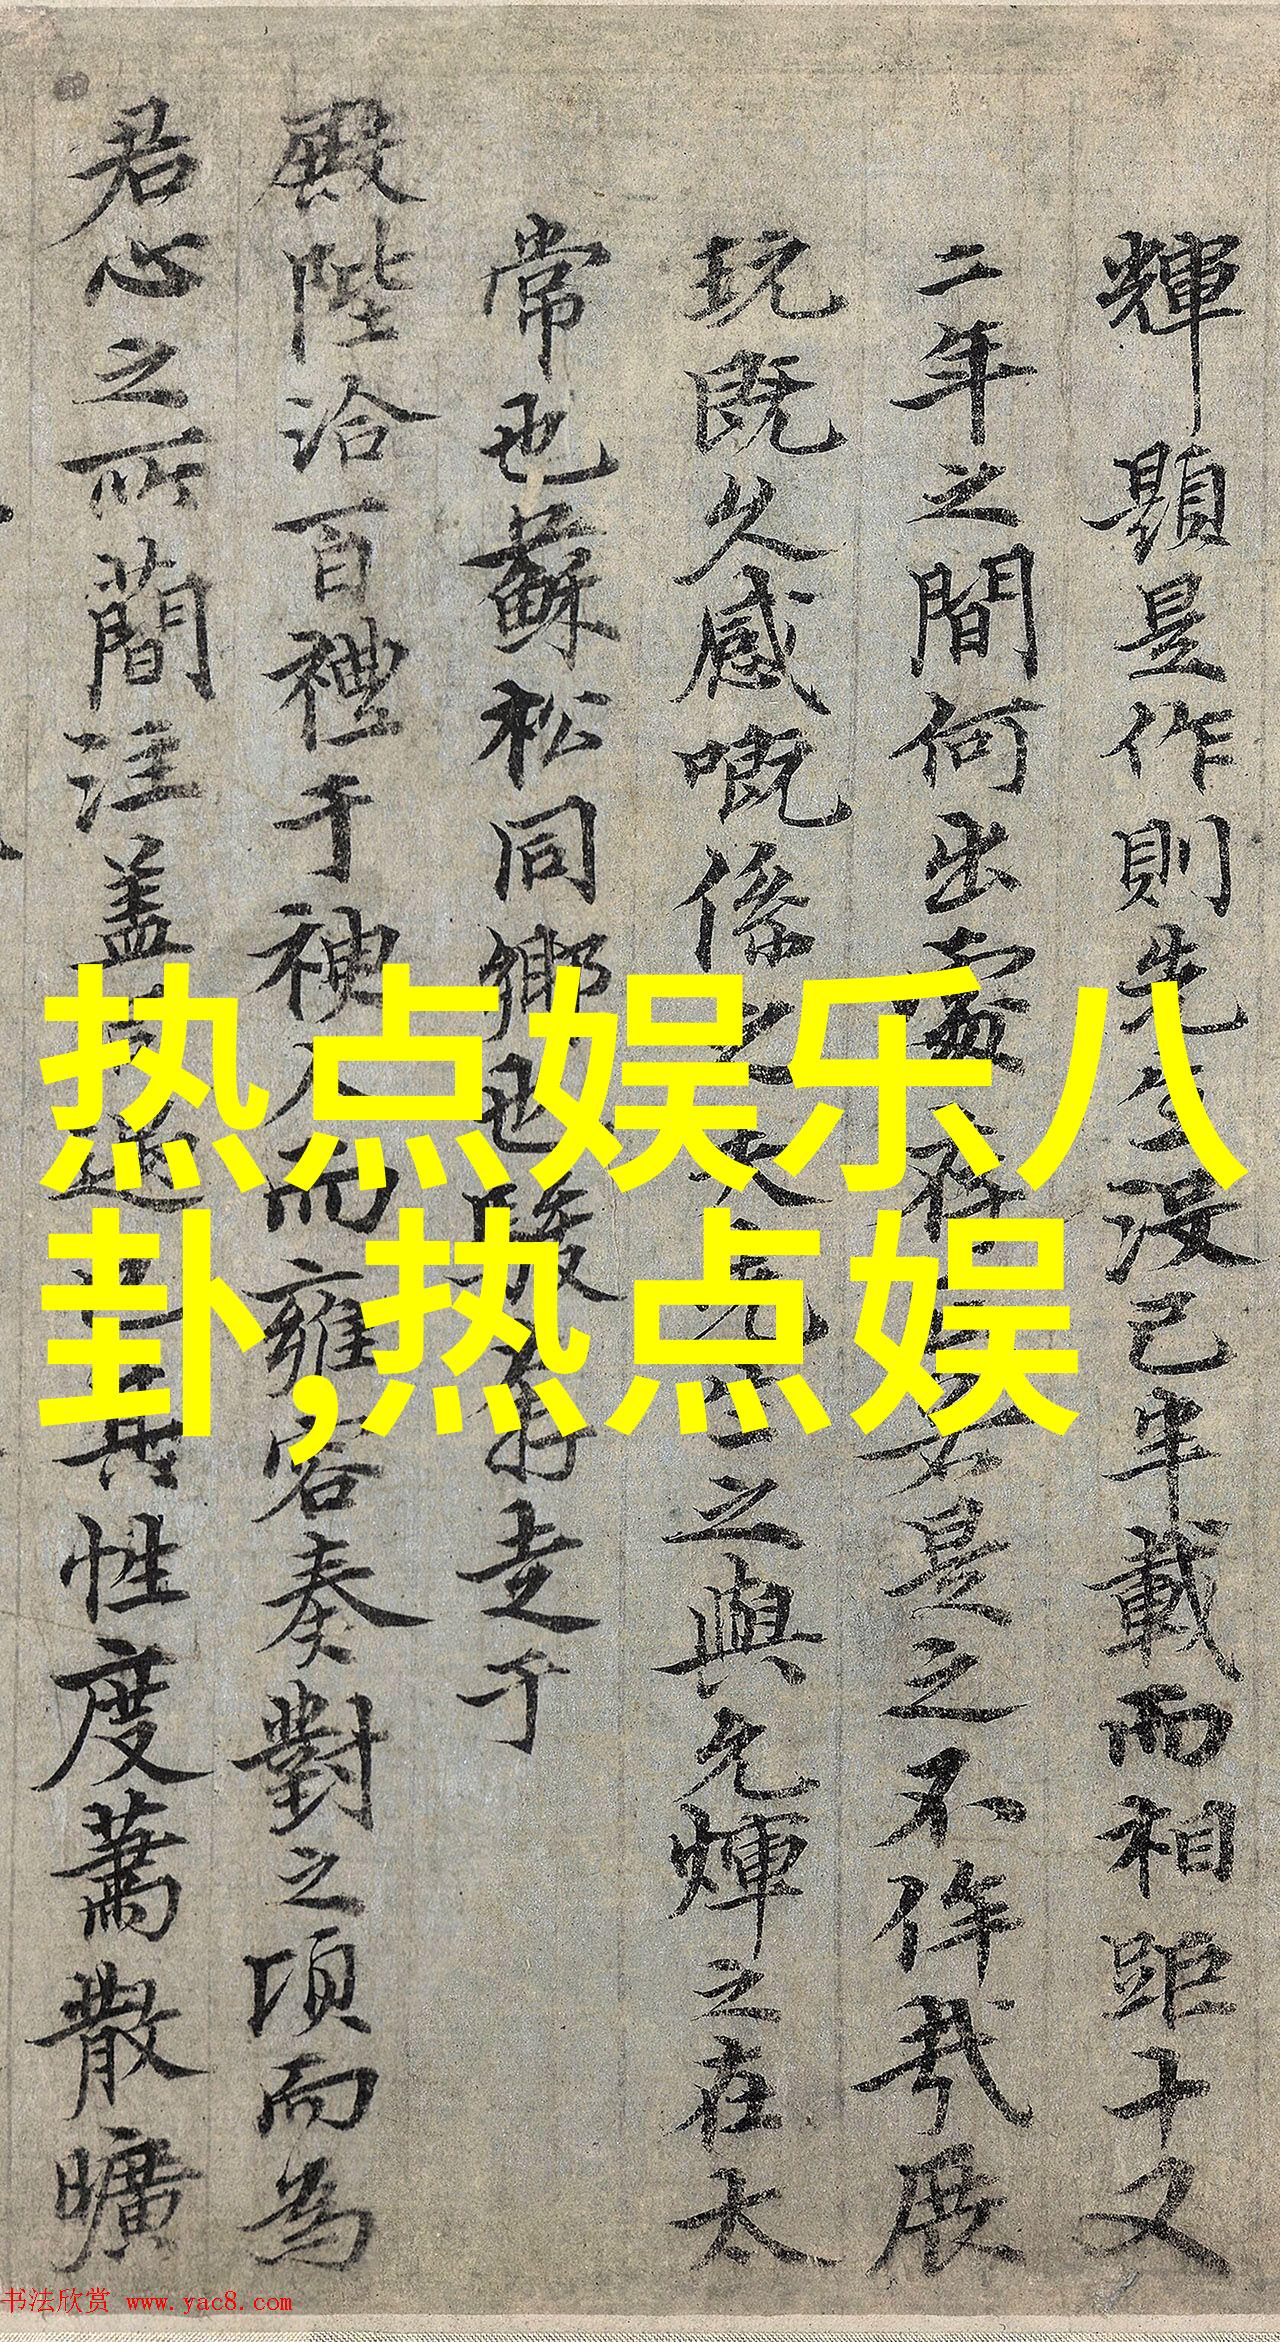 輝題是作則先生沒已半載而相距十又
二年之間何出處存是之不侔哉展
玩既久感嘅係之之與允煇之在太
常也蘇松同鄉也走于
殿陛洽百禮于神人而雍容奏對之頃而為
君心之所簡注蓋其性度蕭散曠
热点娱乐八
卦,热点娱
书法欣赏 www.yac8.com